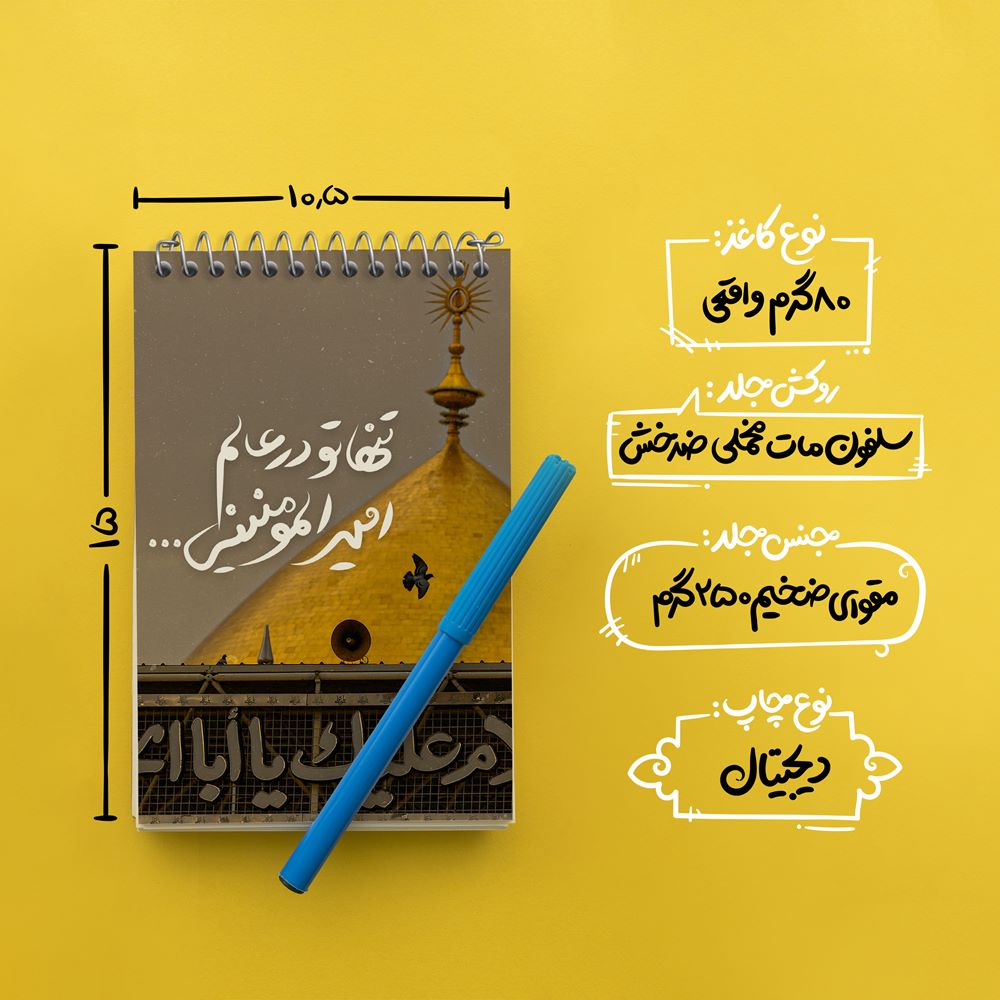 ۱۰٫۵
۱۵
تنها تو در عالم
امیرالمومنینی...
لام علیك یا أبا ا
نوع کاغذ:
۸۰ گرم واقعی
روکش جلد:
سلفون مات مخملی ضدخش
جنس جلد:
مقوای ضخیم ۲۵۰ گرم
نوع چاپ:
دیجیتال